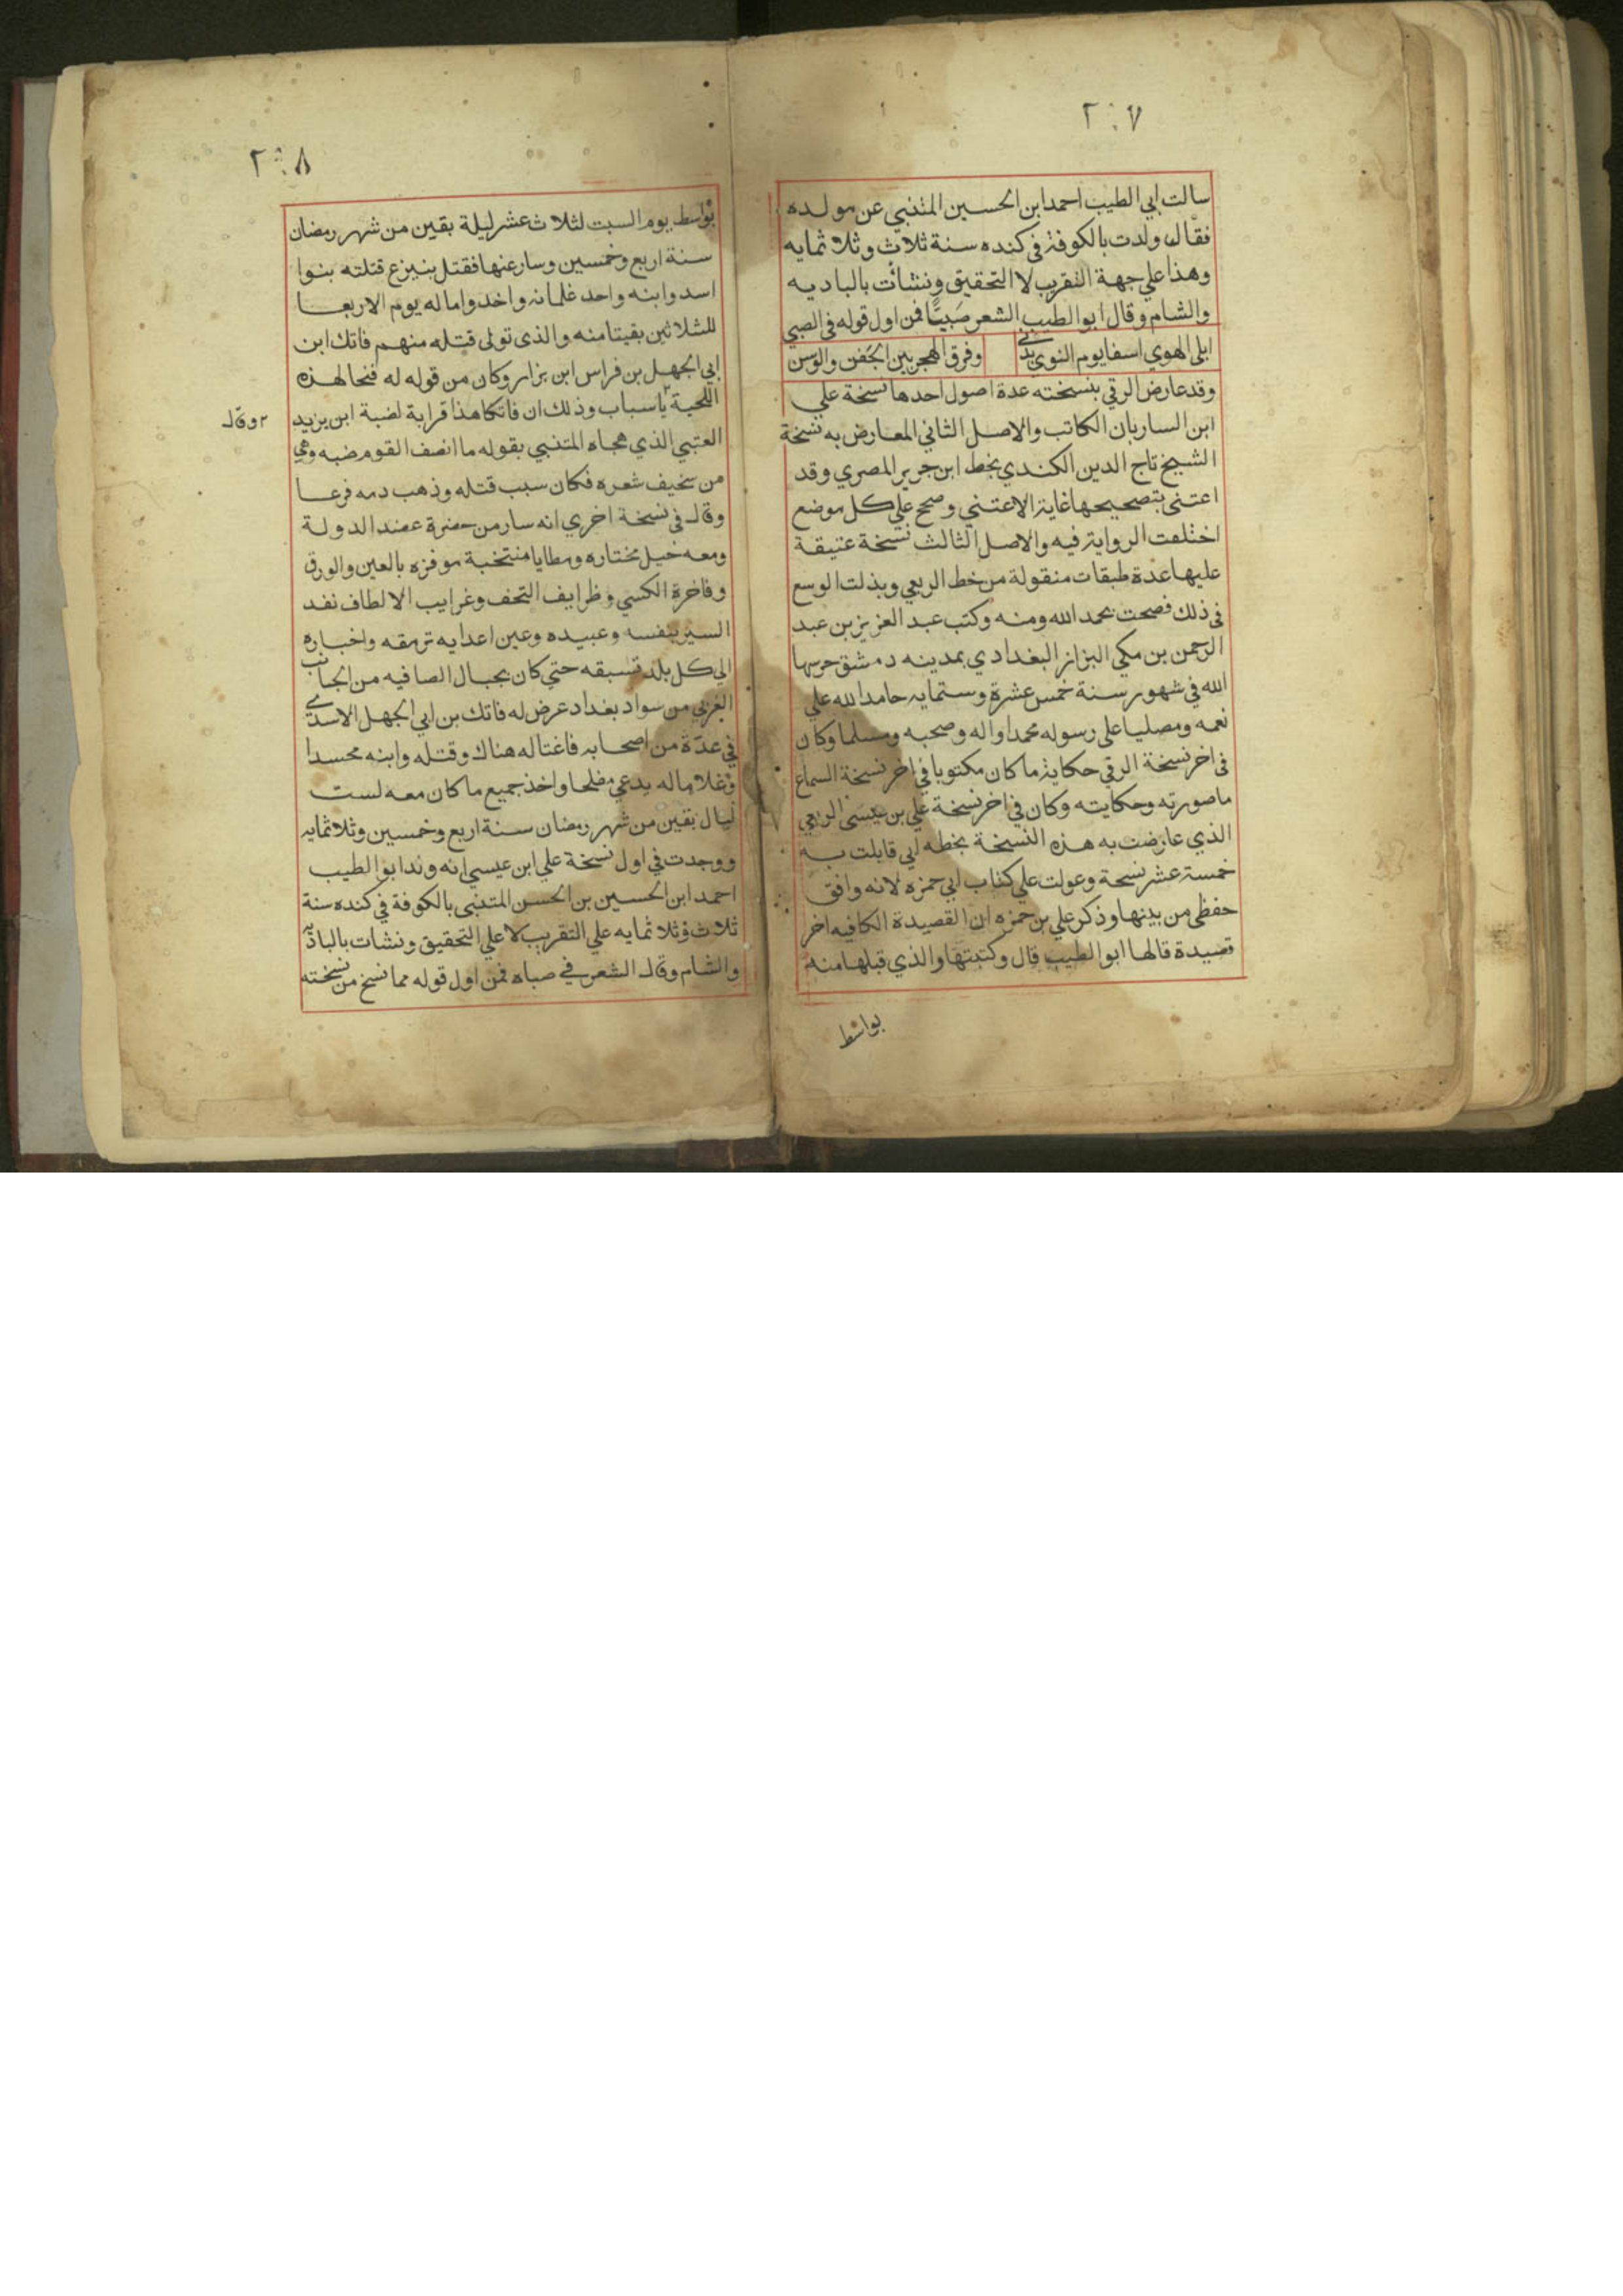 ٢٠٧
سالت ابي الطيب احمد ابن الحسين المتنبي عن مولده
فقال ولدت بالكوفة في كنده سنة ثلاث وثلاثمايه
وهذا علي جهة التقريب لا التحقيق ونشأت بالباديه
والشام وقال ابو الطيب الشعر صَبيًا فمن اول قوله في الصبي
ابلي الهوي اسفا يوم النوي بدني وفرق الهجر بين الجفن والوسن
وقد عارض الرقي بنسخته عدة اصول احدها نسخة علي
ابن الساربان الكاتب والاصل الثاني المعارض به نسخة
الشيخ تاج الدين الكندي بخط ابن جرير المصري وقد
اعتنى بتصحيحها غاية الاعتني وصحح علي كل موضع
اختلفت الرواية فيه والاصل الثالث نسخة عتيقة
عليها عدة طبقات منقولة من خط الربعي وبذلت الوسع
في ذلك فصحت بحمد الله ومنه وكتب عبد العزيز بن عبد
الرحمن بن مكي البزاز البغدادي بمدينه دمشق حرسها
الله في شهور سنة خمس عشرة وستمايه حامدا لله علي
نعمه ومصليا على رسوله محمد واله وصحبه ومسلما وكان
في اخر نسخة الرقي حكاية ما كان مكتوبا في اخر نسخة السماع
ما صورته وحكايته وكان في اخر نسخة علي بن عيسى الربعي
الذي عارضت به هذه النسخة بخطه اني قابلت به
خمسة عشر نسخة وعولت علي كتاب ابي حمزه لانه وافق
حفظي من بينها وذكر علي بن حمزه ان القصيدة الكافيه اخر
قصيدة قالها ابو الطيب قال وكتبتها والذي قبلها منه
بواسط
٢٠٨
بواسط يوم السبت لثلاث عشر ليلة بقين من شهر رمضان
سنة اربع وخمسين وسار عنها فقتل ببنيزع قتلته بنوا
اسد وابنه واحد غلمانه واخدوا ماله يوم الاربعا
للثلاثين بقيتا منه والذى تولى قتله منهم فاتك ابن
ابي الجهل بن فراس ابن بزار وكان من قوله له فتحا لهذه
اللحية ياسباب وذلك ان فاتكا هذا قرابة لضبة ابن يزيد
العتبي الذي هجاه المتنبي بقوله ما انصف القوم ضبه وهي
من سخيف شعره فكان سبب قتله وذهب دمه فرعا
وقال في نسخة اخري انه سار من حضرة عضد الدولة
ومعه خيل مختاره ومطايا منتخبة موقره بالعين والورق
وفاخرة الكسي وظرايف التحف وغرايب الالطاف نفد
السير بنفسه وعبيده وعين اعدايه ترمقه واخباره
الي كل بلد تسبقه حتي كان بجبال الصافيه من الجانب
الغربي من سواد بغداد عرض له فاتك بن ابي الجهل الاسدي
في عدة من اصحابه فاغتاله هناك وقتله وابنه محسدا
وغلاما له يدعي مفلحا واخذ جميع ما كان معه لست
ليال بقين من شهر رمضان سنة اربع وخمسين وثلاثمايه
ووجدت في اول نسخة علي ابن عيسي انه ولد ابو الطيب
احمد ابن الحسين بن الحسن المتنبي بالكوفة في كنده سنة
ثلاث وثلاثمايه علي التقريب لا علي التحقيق ونشات بالباديه
والشام وقال الشعر في صباه فمن اول قوله مما نسخ من نسخته
وقال